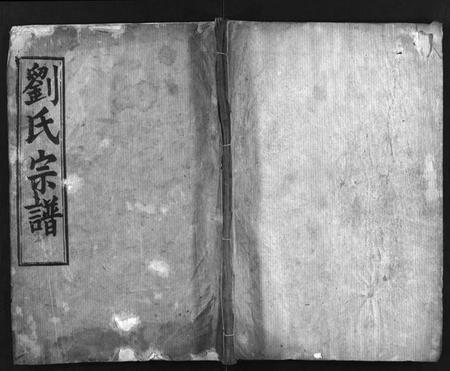 劉氏宗譜